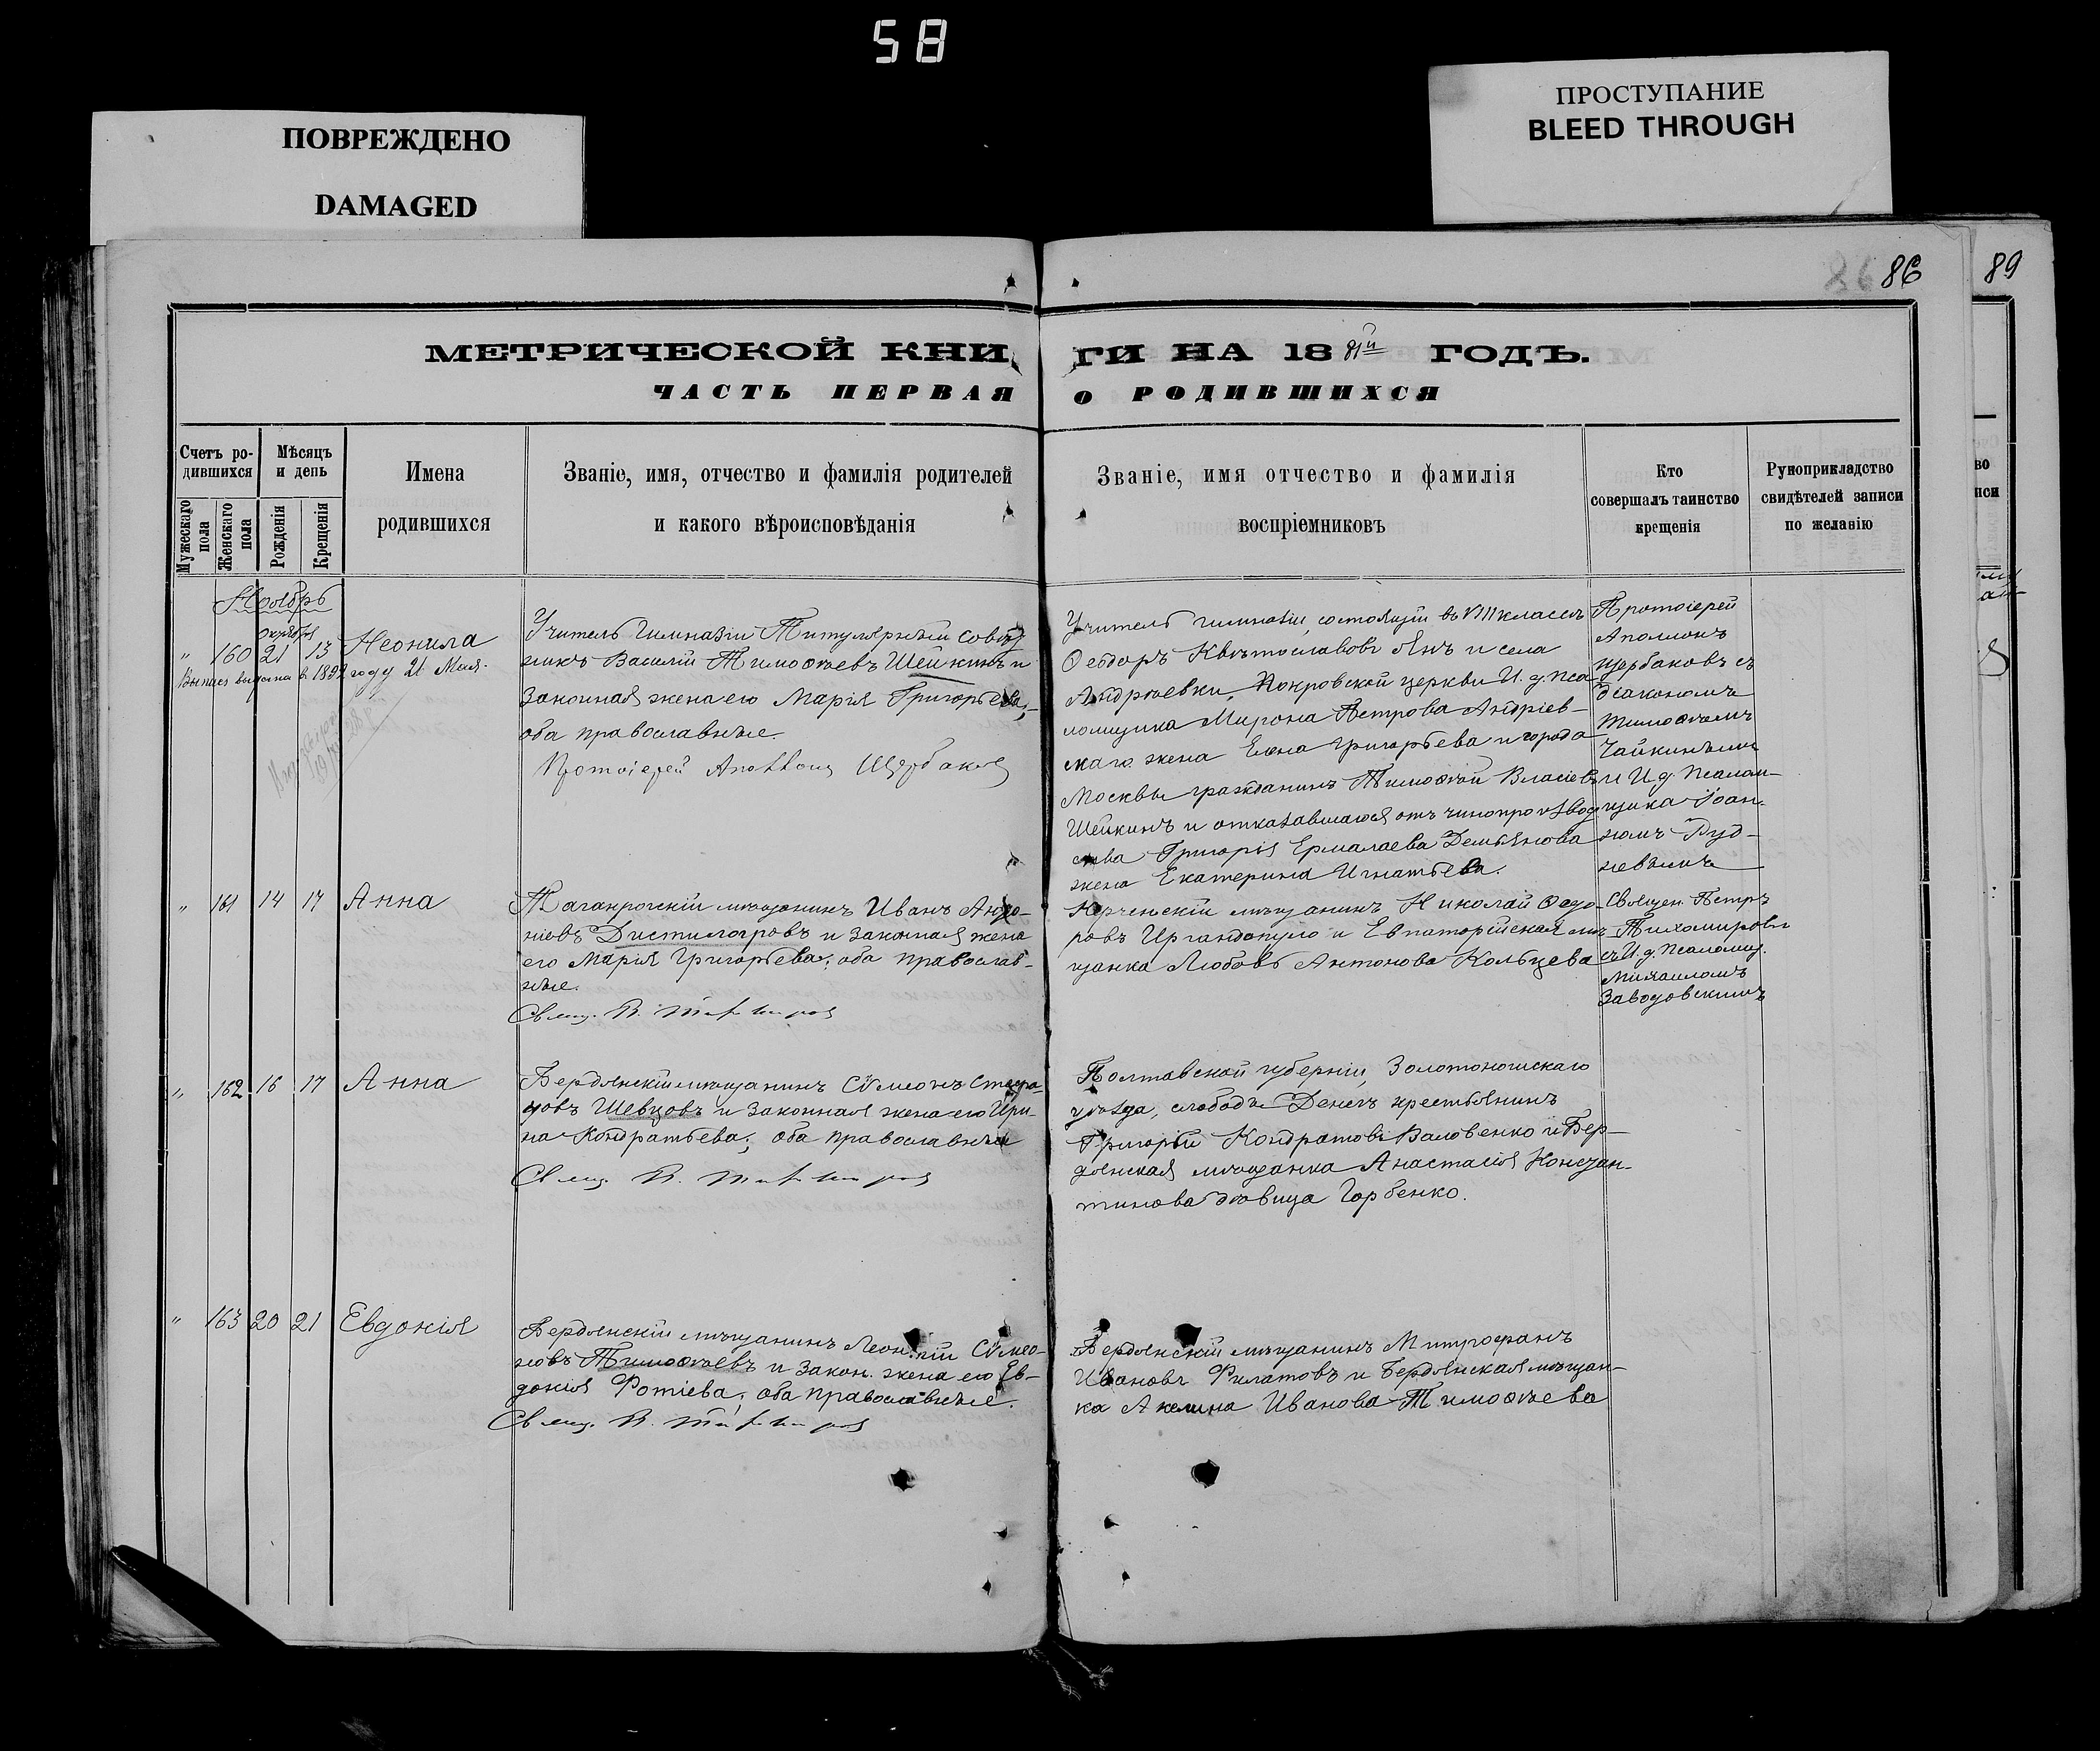 58
ПОВРЕЖДЕНО
DAMAGED
ПРОСТУПАНИЕ
BLEED THROUGH
86 86
89
МЕТРИЧЕСКОЙ КНИГИ НА 1881й ГОДЪ.
ЧАСТЬ ПЕРВАЯ О РОДИВШИХСЯ
Счетъ ро-
дившихся
Мѣсяцъ
и день
Мужескаго пола
Женскаго пола
Рожденія
Крещенія
Имена
родившихся
Званіе, имя, отчество и фамилія родителей
и какого вѣроисповѣданія
Званіе, имя отчество и фамилія
воспріемниковъ
Кто
совершалъ таинство
крещенія
Рукоприкладство
свидѣтелей записи
по желанію
Ноябрь
октября
" 160 21 13 Неонила
Выпись выдана в 1892 году 21 Мая.
Учитель Гимназіи Титулярный Совѣт-
никъ Василій Тимоѳеевъ Шейкинъ и
Законная жена его Марія Григорьева,
оба православные.
Протоіерей Аполлонъ Щербаковъ
Учитель гимназіи, состоящій въ VIII классѣ
Ѳеодоръ Квѣтославовъ Янъ и села
Андреевки, Покровской церкви И. д. Пса-
ломщика Мирона Петрова Андріев-
скаго жена Елена Григорьева и города
Москвы гражданинъ Тимоѳей Власіевъ
Шейкинъ и отказавшагося отъ чинопроизвод
ства Григорія Ермалаева Демьянова
жена Екатерина Игнатьева.
Протоіерей
Аполлонъ
Щербаковъ съ
діакономъ
Тимоѳеемъ
Чайкинымъ
и И. д. Псалом-
щика Іоан-
номъ Руд-
невымъ
" 161 14 17 Анна
Таганрогскій мѣщанинъ Иванъ Анто-
ніевъ Дистилогровъ и Законная жена
его Марія Григорьева; оба православ-
ные.
Свящ. П. Тихомировъ
Керченскій мѣщанинъ Николай Ѳедо-
ровъ Иргандопуло и Евпаторійская мѣ-
щанка Любовь Антонова Кольцева
Священ. Петръ
Тихомировъ
съ И. д. Псаломщ.
Михаиломъ
Заводовскимъ
" 162 16 17 Анна
Бердянскій мѣщанинъ Сѵмеонъ Стефа-
новъ Шевцовъ и Законная жена его Ири-
на Кондратьева; оба православные
Свящ. П. Тихомировъ
Полтавской губерніи, Золотоношскаго
уѣзда, слободы Денегъ крестьянинъ
Григорій Кондратовъ Валовенко и Бер-
дянская мѣщанка Анастасія Констан-
тинова дѣвица Горбенко.
" 163 20 21 Евдокія
Бердянскій мѣщанинъ Леонтій Сѵмео-
новъ Тимоѳеевъ и Закон. жена его Ев-
докія Фотіева; оба православные.
Свящ. П. Тихомировъ
Бердянскій мѣщанинъ Митрофанъ
Ивановъ Филатовъ и Бердянская мѣщан-
ка Акелина Иванова Тимоѳеева